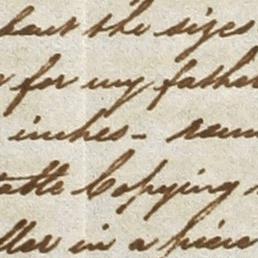 bout the sizes
for my father
inches - 
Copying
ller in a piece